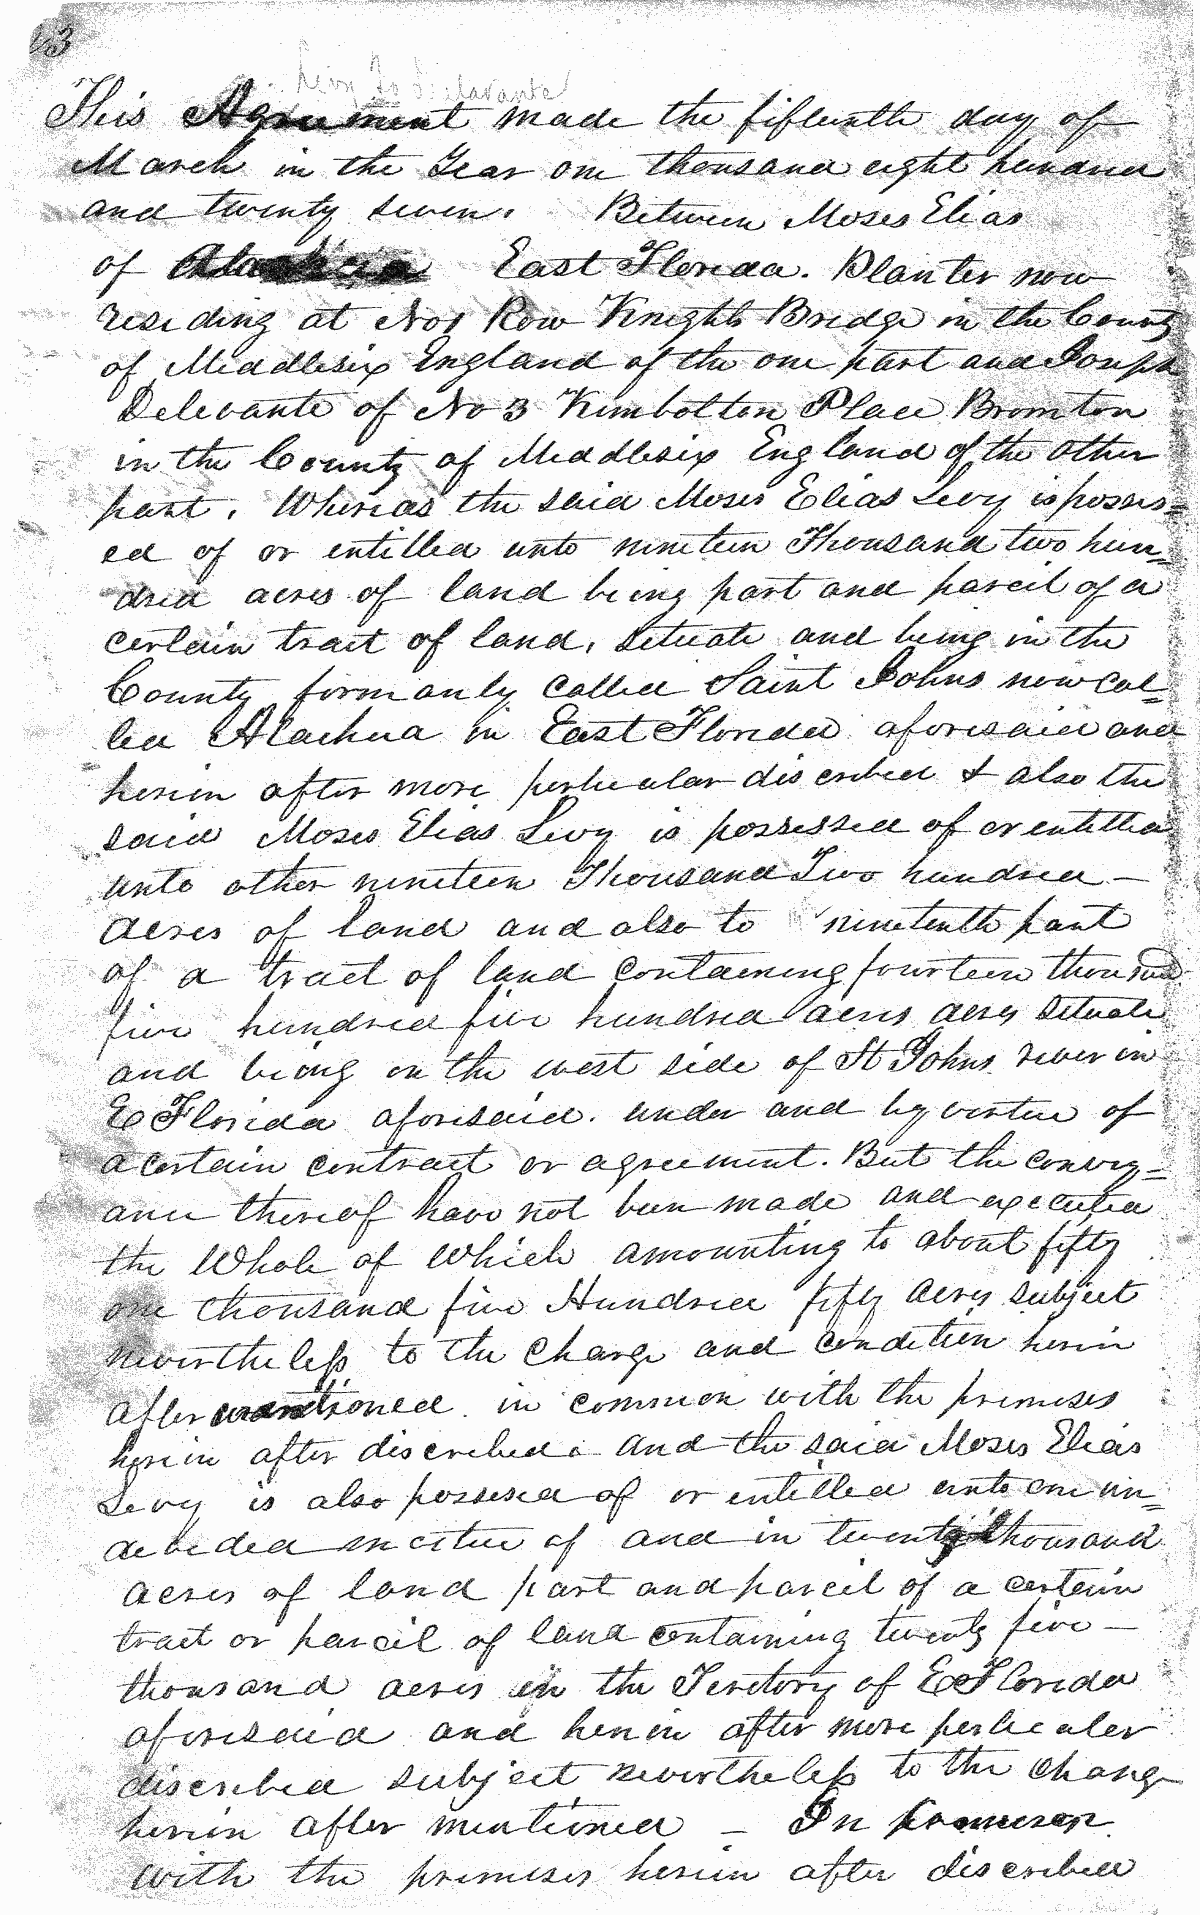 23
Levy to Delavante
This Agreement made the fifteenth day of
March in the Year one thousand eight hundred
and twenty seven. Between Moses Elias
of East Florida. Planter now
residing at No 1 Row Knights Bridge in the County
of Middlesix England of the one part and Joseph
Delevante of No 3 Kimbolton Place Bromton
in the County of Middlesix England of the other
part. Whereas the said Moses Elias Levy is posses=
ed of or entitled unto nineteen Thousand two hun=
dred acres of land being part and parcel of a
certain tract of land, situate and being in the
County formanly called Saint Johns now cal=
led Alachua in East Florida aforesaid and
herein after more perticular discribed & also the
said Moses Elias Levy is possessed of or entitled
unto other nineteen Thousand Two hundred —
acres of land and also to nineteenth part
of a tract of land containing fourteen thousand
five hundred five hundred acres acres situate
and being on the west side of St Johns river in
E Florida aforesaid. under and by virtue of
a certain contract or agreement. But the convey=
ance thereof have not been made and executed
the Whole of Which amounting to about fifty
one thousand five Hundred fifty acres subject
nevertheless to the charge and condition herin
after mentioned in common with the premises
herein after discribed. And the said Moses Elias
Levy is also possesed of or entitled unto one un=
in twenty thousand
acres of land part and parcel of a certain
tract or parcel of land containing twenty five —
thousand acres in the Teritory of E Florida
aforesaid and herein after more perticuler
discribed subject nevertheless to the charge
herein after mentioned — In common
with the premises herein after discribed